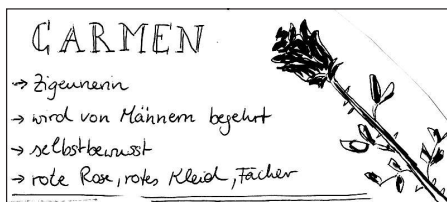 CARMEN
→ Zigeunerin
→ wird von Männern begehrt
→ selbstbewusst
→ rote Rose, rotes Kleid, Fächer